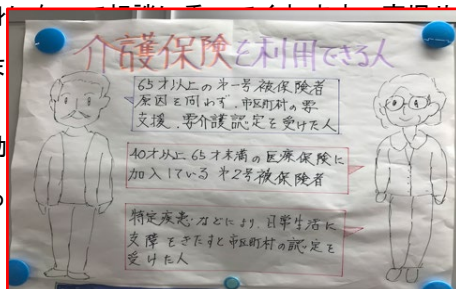 介護保険を利用できる人
65才以上の第一号被保険者
原因を問わず、市区町村の要
支援、要介護認定を受けた人
40才以上65才未満の医療保険に
加入している第2号被保険者
特定疾患などにより、日常生活に
支障をきたすと市区町村の認定を
受けた人